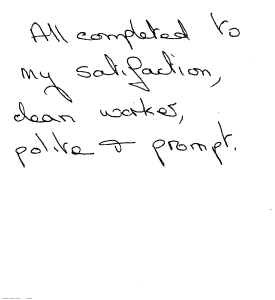 All completed to
my satifaction,
clean worker,
polite & prompt.